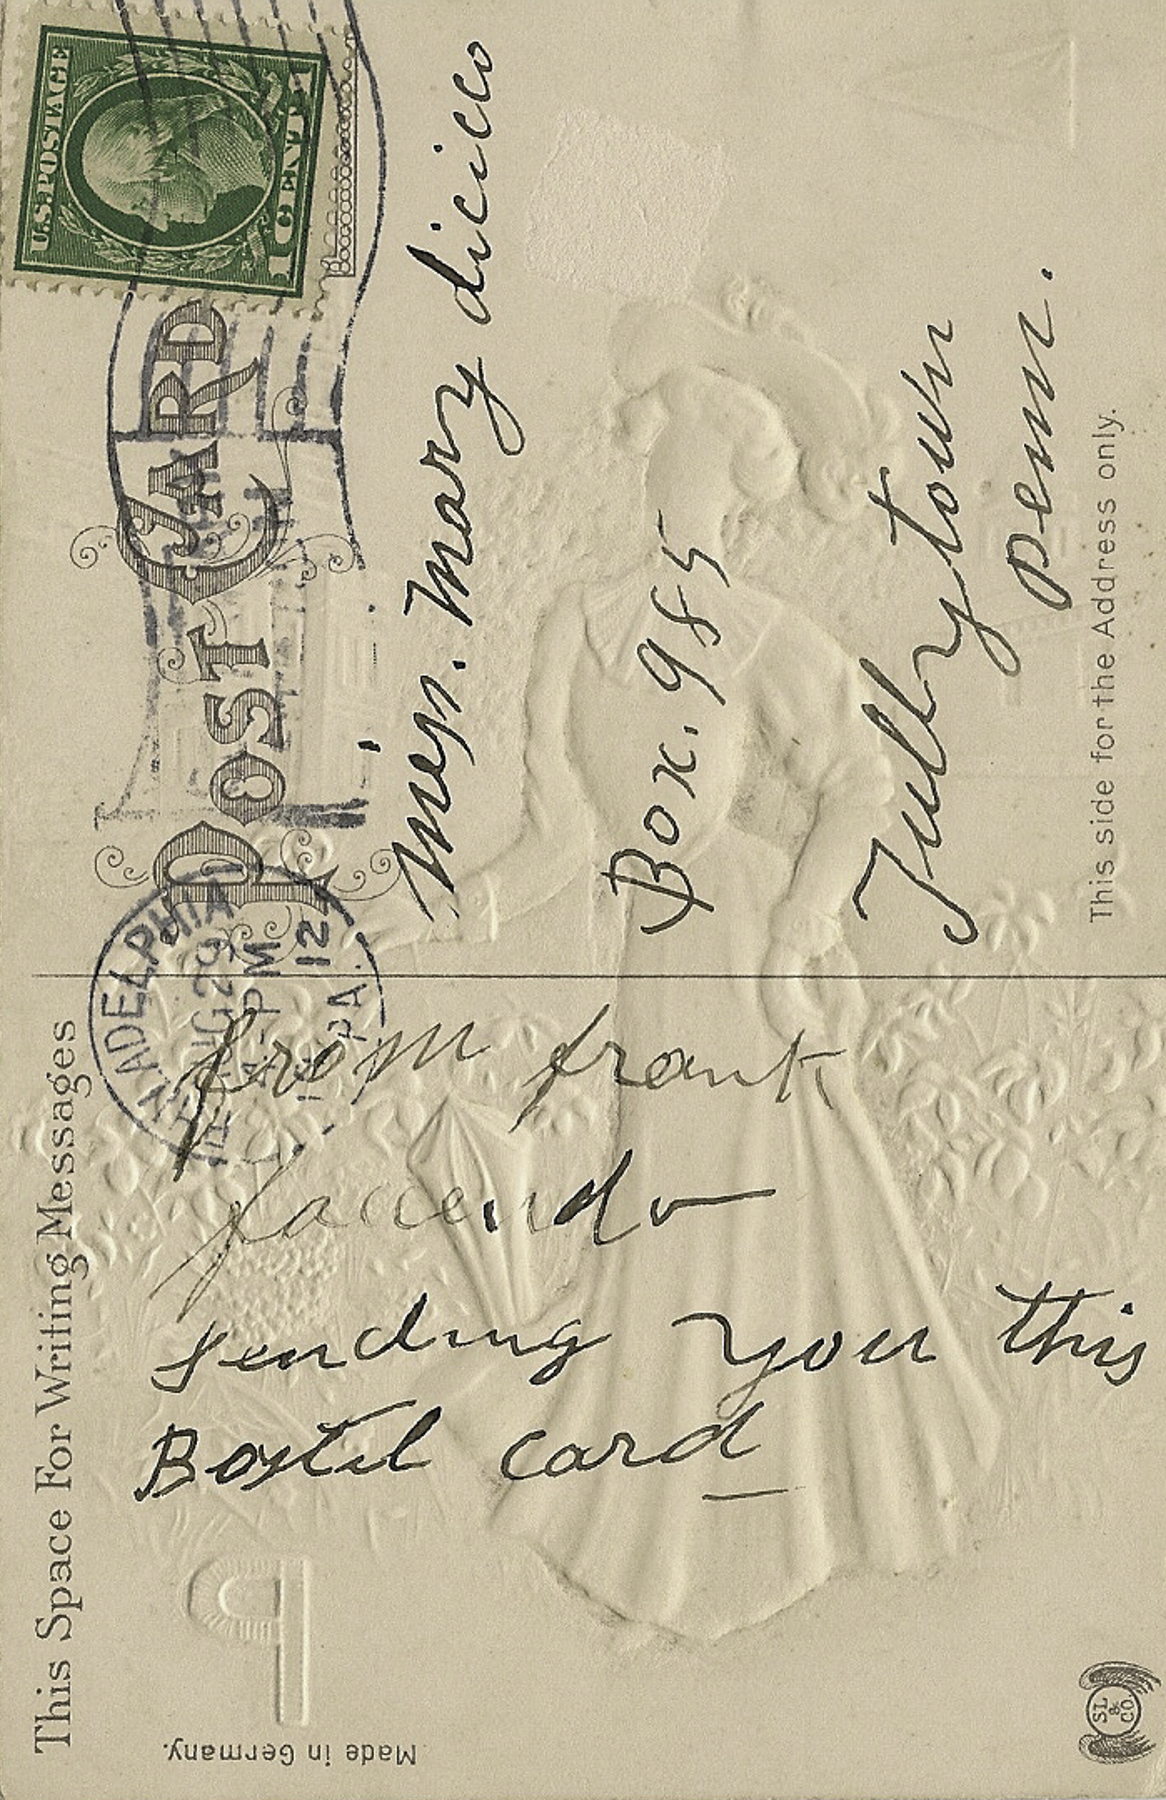 This Space For Writing Messages
POST CARD
U.S. POSTAGE
1 CENT 1
ADELPHIA
AUG 29
PM
12
PA.
from frank
faccendo
sending you this
Bostel card
Miss. Mary dicicco
Box. 985
Tullytown
penn.
This side for the Address only.
Made in Germany.
SL
&
CO.